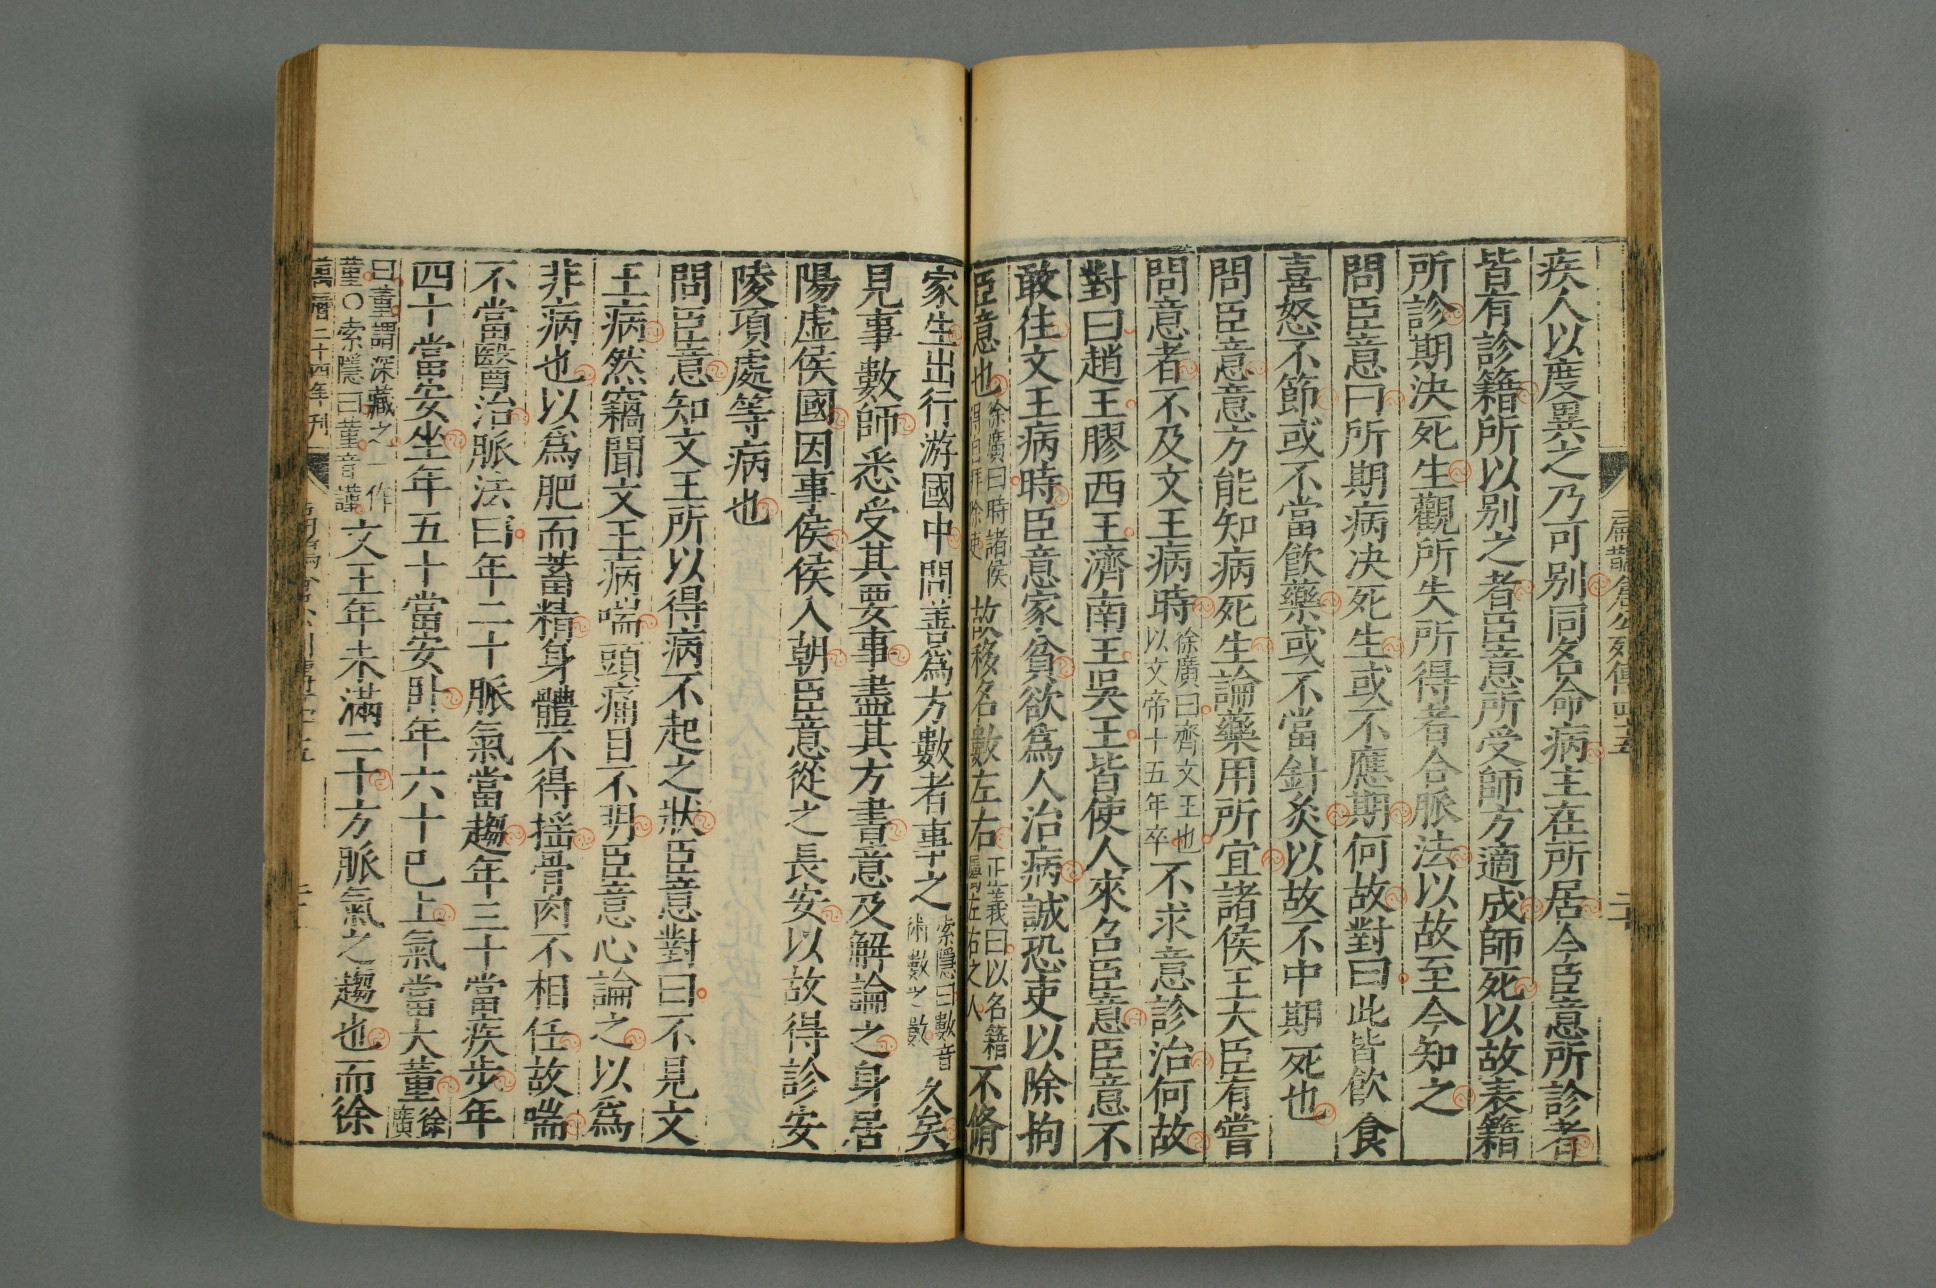 扁鵲倉公列傳四十五
疾人以度異之乃可别同名命病主在所居今臣意所診者
皆有診籍所以别之者臣意所受師方適成師死以故表籍
所診期決死生觀所失所得者合脈法以故至今知之
問臣意曰所期病決死生或不應期何故對曰此皆飲食
喜怒不節或不當飲藥或不當針灸以故不中期死也
問臣意意方能知病死生論藥用所宜諸侯王大臣有嘗
問意者不及文王病時徐廣曰齊文王也以文帝十五年卒不求意診治何故
對曰趙王膠西王濟南王吳王皆使人來召臣意臣意不
敢往文王病時臣意家貧欲爲人治病誠恐吏以除拘
臣意也徐廣曰時諸侯得自拜除吏故移名數左右正義曰以名籍屬左右之人不脩
家生出行游國中問善爲方數者事之索隱曰數音術數之數久矣
見事數師悉受其要事盡其方書意及解論之身居
陽虛侯國因事侯侯入朝臣意從之長安以故得診安
陵項處等病也
問臣意知文王所以得病不起之狀臣意對曰不見文
王病然竊聞文王病喘頭痛目不明臣意心論之以爲
非病也以爲肥而蓄精身體不得揺骨肉不相任故喘
不當醫治脈法曰年二十脈氣當趨年三十當疾步年
四十當安坐年五十當安臥年六十已上氣當大董徐廣
曰董謂深藏之一作堇〇索隱曰董音謹文王年未滿二十方脈氣之趨也而徐
萬曆二十四年刊